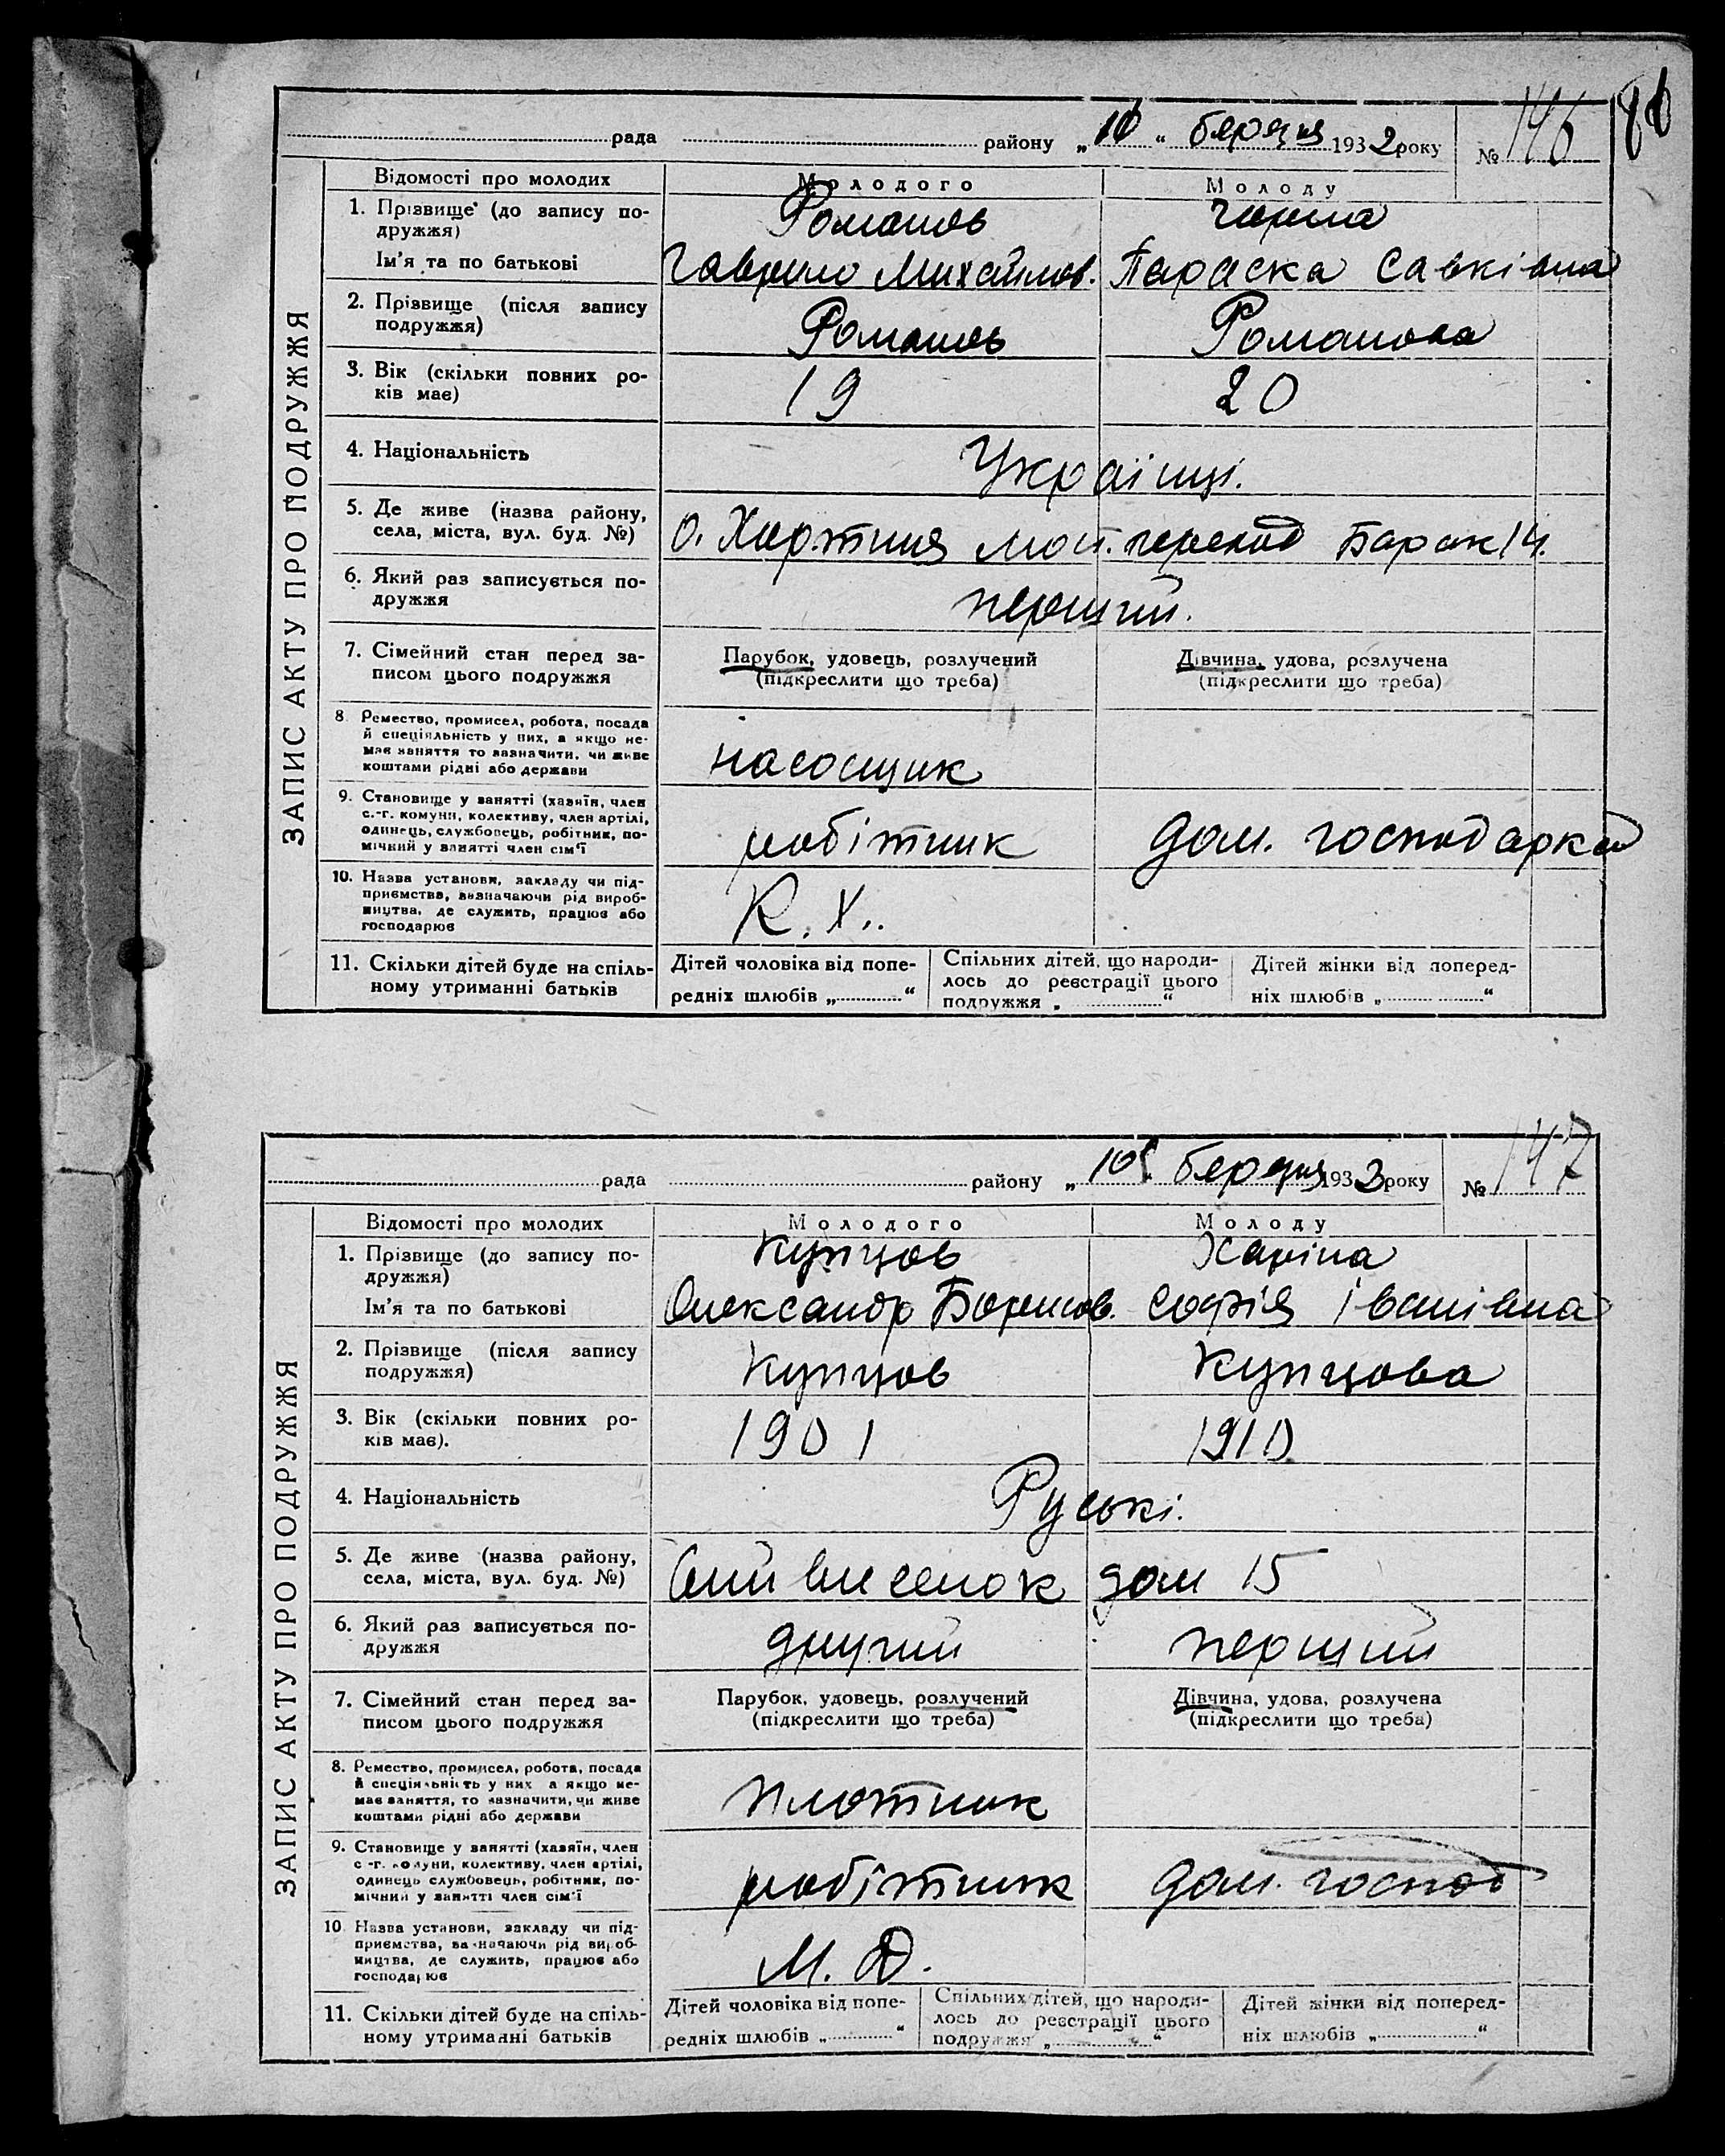 86
рада района „10“ березня 1932 року № 146
ЗАПИС АКТУ ПРО ПОДРУЖЖЯ
Відомості про молодих Молодого Молоду
1. Прізвище (до запису по-
дружжя) Романов Чорна
Ім'я та по батькові Гаврило Михайлов. Параска Савківна
2. Прізвище (після запису
подружжя) Романов Романова
3. Вік (скільки повних ро-
ків має) 19 20
4. Національність Українці.
5. Де живе (назва району,
села, міста, вул. буд. №) О. Хортиця Барак 14.
6. Який раз записується по-
дружжя перший.
7. Сімейний стан перед за-
писом цього подружжя Парубок, удовець, розлучений Дівчина, удова, розлучена
(підкреслити що треба) (підкреслити що треба)
8. Ремество, промисел, робота, посада
й спеціяльність у них, а якщо не-
має заняття то зазначити, чи живе
коштами рідні або держави насосщик
9. Становище у занятті (хазяїн, член
с.-г. комуни, колективу, член артілі,
одинець, службовець, робітник, по-
мічний у занятті член сім'ї робітник дом. господарка
10. Назва установи, закладу чи під-
приємства, визначаючи рід вироб-
ництва, де служить, працює або
господарює К. Х.
11. Скільки дітей буде на спіль-
ному утриманні батьків Дітей чоловіка від попе-
редніх шлюбів „ “ Спільних дітей, що народи-
лось до реєстрації цього
подружжя „ “ Дітей жінки від поперед-
ніх шлюбів „ “
рада району „10 березня 1933 року № 147
ЗАПИС АКТУ ПРО ПОДРУЖЖЯ
Відомості про молодих Молодого Молоду
1. Прізвище (до запису по-
дружжя) Купцов Харіна
Ім'я та по батькові Олександр Борисов. Софія Іванівна
2. Прізвище (після запису
подружжя) Купцов Купцова
3. Вік (скільки повних ро-
ків має). 1901 1910
4. Національність Руські.
5. Де живе (назва району,
села, міста, вул. буд. №) виселок дом 15
6. Який раз записується по-
дружжя другий перший
7. Сімейний стан перед за-
писом цього подружжя Парубок, удовець, розлучений Дівчина, удова, розлучена
(підкреслити що треба) (підкреслити що треба)
8. Ремество, промисел, робота, посада
й спеціяльність у них а якщо не-
має заняття, то зазначити, чи живе
коштами рідні або держави плотник
9. Становище у занятті (хазяїн, член
с-г. комуни, колективу, член артілі,
одинець службовець, робітник, по-
мічний у занятті член сім'ї робітник дом. господ
10. Назва установи, закладу чи під-
приємства, визначаючи рід вироб-
ництва, де служить, працює або
господарює М. Д.
11. Скільки дітей буде на спіль-
ному утриманні батьків Дітей чоловіка від попе-
редніх шлюбів „ “ Спільних дітей, що народи-
лось до реєстрації цього
подружжя „ “ Дітей жінки від поперед-
ніх шлюбів „ “